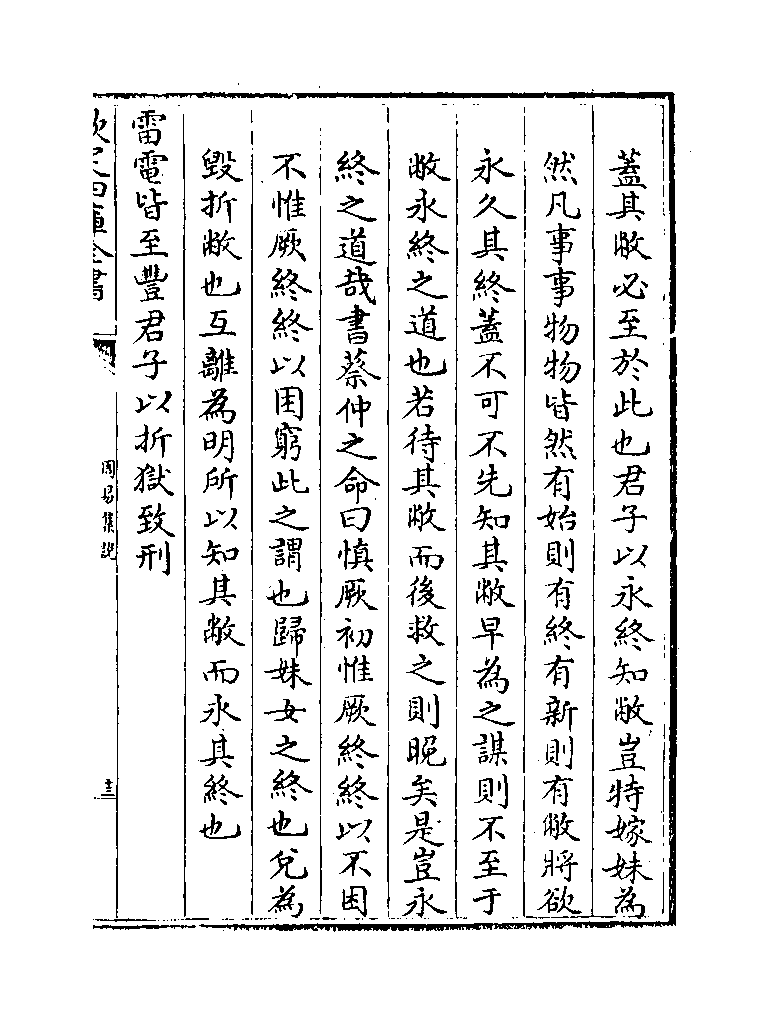 蓋其敝必至於此也君子以永終知敝豈特嫁妹為
然凡事事物物皆然有始則有終有新則有敝將欲
永久其終蓋不可不先知其敝早為之謀則不至于
敝永終之道也若待其敝而後救之則晚矣是豈永
終之道哉書蔡仲之命曰慎厥初惟厥終終以不困
不惟厥終終以困窮此之謂也歸妹女之終也兌為
毀折敝也互離為明所以知其敝而永其終也
雷電皆至豐君子以折獄致刑
欽定四庫全書
周易集說
十三